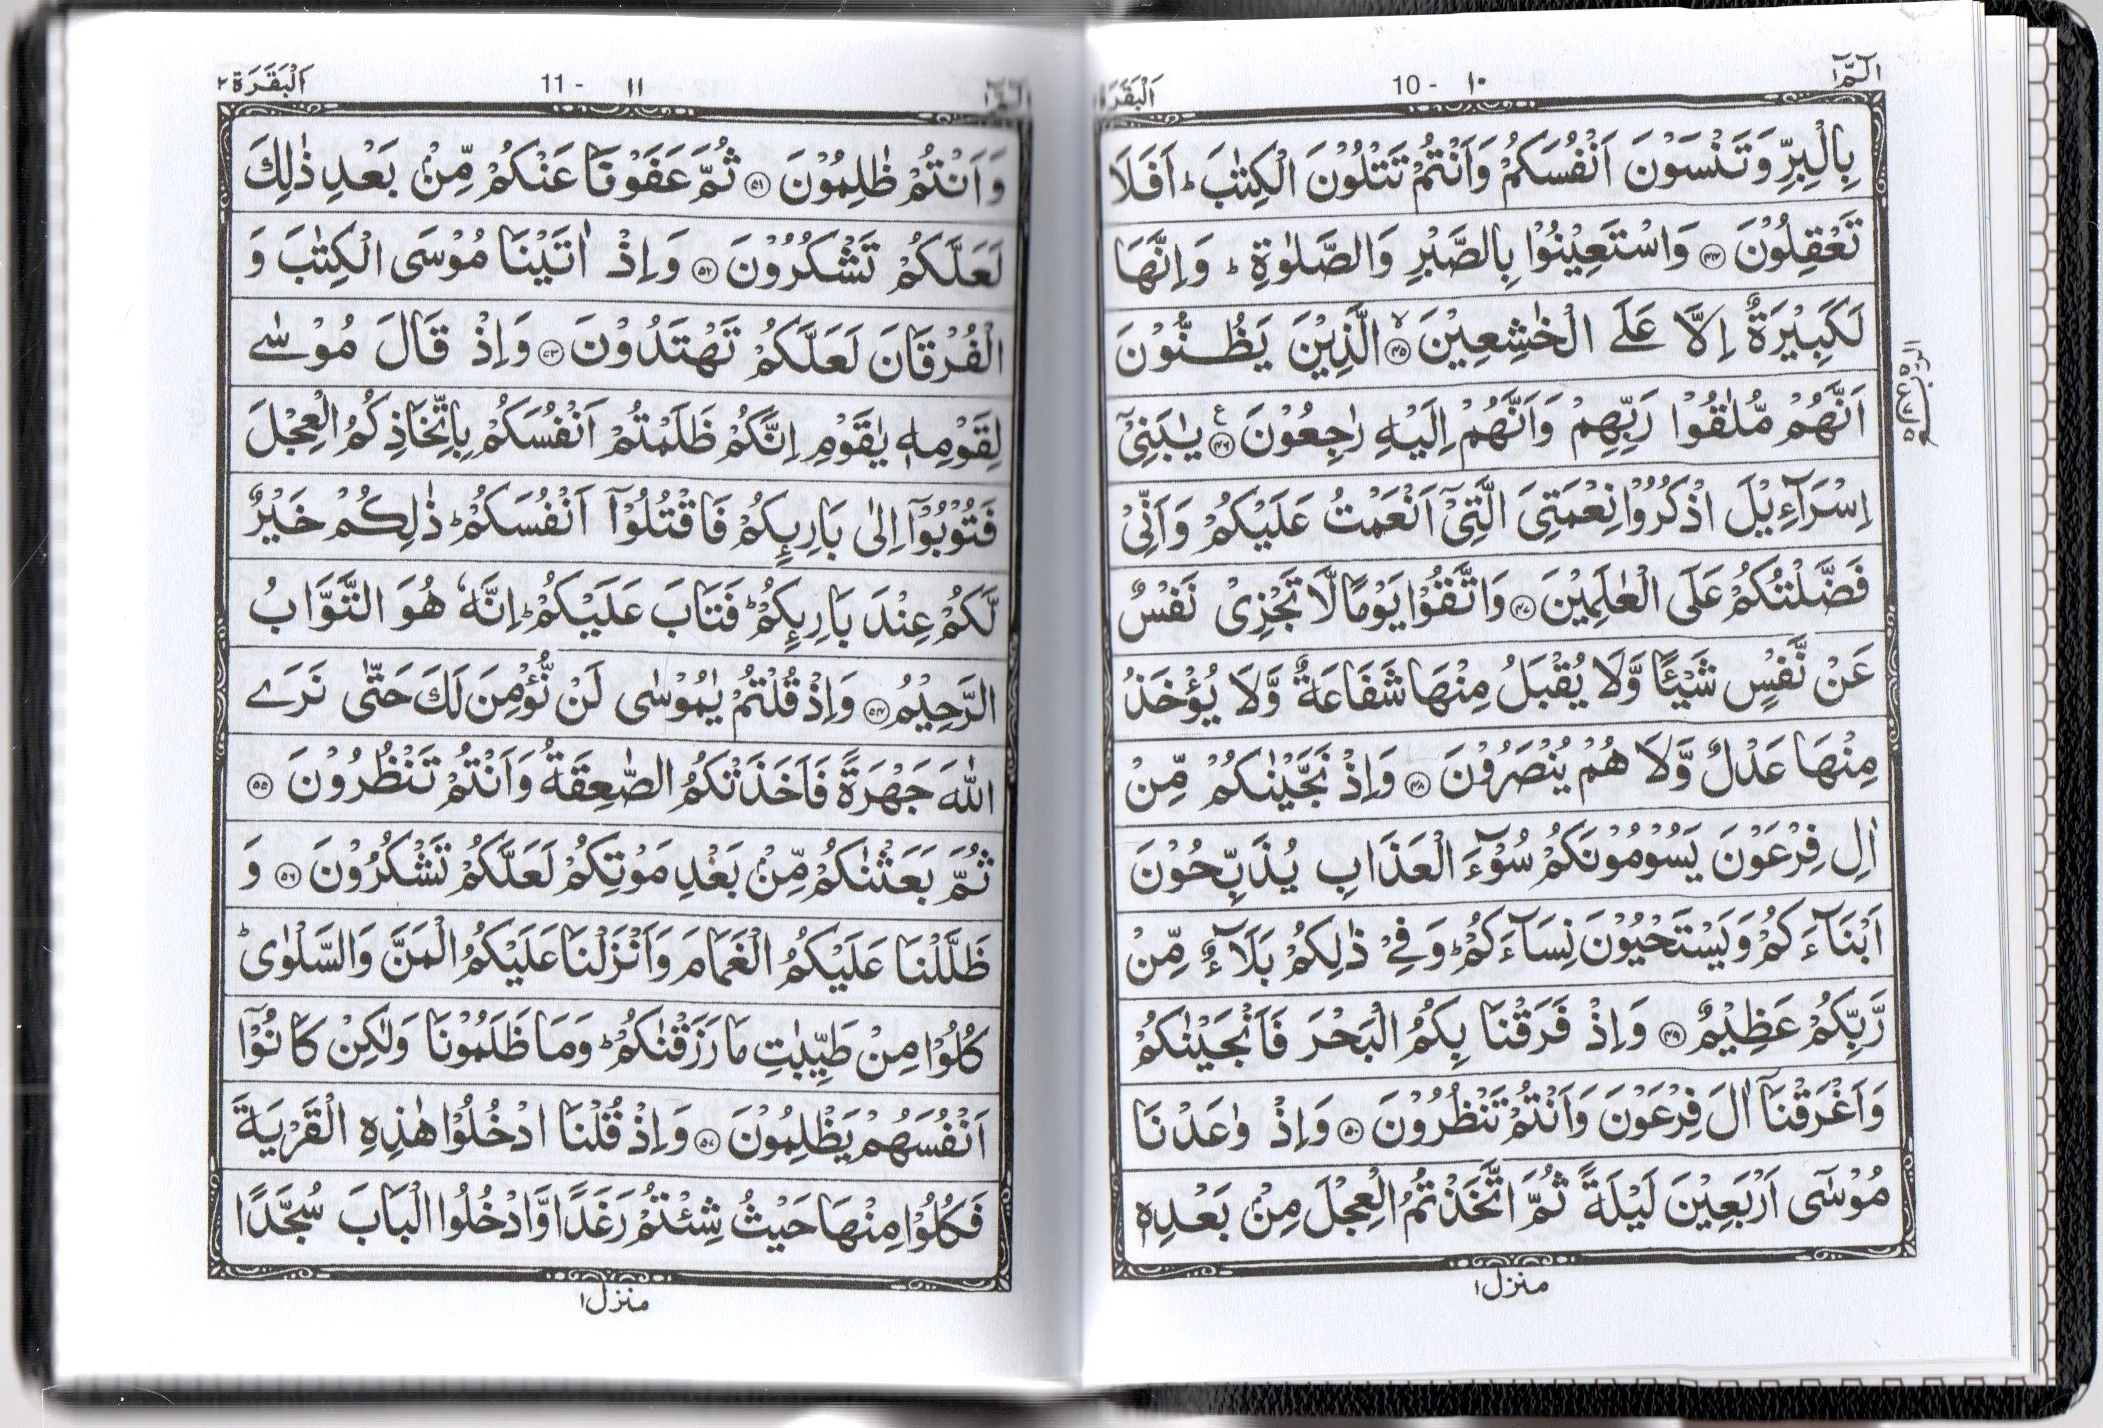 الٓمّٓ ١
10 - ١٠
اَلْبَقَرَة
بِالْبِرِّ وَتَنْسَوْنَ اَنْفُسَكُمْ وَاَنْتُمْ تَتْلُوْنَ الْكِتٰبَ ؕ اَفَلَا
تَعْقِلُوْنَ ﴿۴۴﴾ وَاسْتَعِيْنُوْا بِالصَّبْرِ وَالصَّلٰوةِ ؕ وَاِنَّهَا
لَكَبِيْرَةٌ اِلَّا عَلَى الْخٰشِعِيْنَ ﴿۴۵﴾ۙ الَّذِيْنَ يَظُنُّوْنَ
اَنَّهُمْ مُّلٰقُوْا رَبِّهِمْ وَاَنَّهُمْ اِلَيْهِ رٰجِعُوْنَ ﴿۴۶﴾ ع يٰبَنِيْٓ
اِسْرَآءِيْلَ اذْكُرُوْا نِعْمَتِيَ الَّتِيْٓ اَنْعَمْتُ عَلَيْكُمْ وَاَنِّيْ
فَضَّلْتُكُمْ عَلَى الْعٰلَمِيْنَ ﴿۴۷﴾ وَاتَّقُوْا يَوْمًا لَّا تَجْزِيْ نَفْسٌ
عَنْ نَّفْسٍ شَيْـًٔا وَّلَا يُقْبَلُ مِنْهَا شَفَاعَةٌ وَّلَا يُؤْخَذُ
مِنْهَا عَدْلٌ وَّلَا هُمْ يُنْصَرُوْنَ ﴿۴۸﴾ وَاِذْ نَجَّيْنٰكُمْ مِّنْ
اٰلِ فِرْعَوْنَ يَسُوْمُوْنَكُمْ سُوْٓءَ الْعَذَابِ يُذَبِّحُوْنَ
اَبْنَآءَكُمْ وَيَسْتَحْيُوْنَ نِسَآءَكُمْ ؕ وَفِيْ ذٰلِكُمْ بَلَآءٌ مِّنْ
رَّبِّكُمْ عَظِيْمٌ ﴿۴۹﴾ وَاِذْ فَرَقْنَا بِكُمُ الْبَحْرَ فَاَنْجَيْنٰكُمْ
وَاَغْرَقْنَآ اٰلَ فِرْعَوْنَ وَاَنْتُمْ تَنْظُرُوْنَ ﴿۵۰﴾ وَاِذْ وٰعَدْنَا
مُوْسٰٓى اَرْبَعِيْنَ لَيْلَةً ثُمَّ اتَّخَذْتُمُ الْعِجْلَ مِنْۢ بَعْدِهٖ
منزل ١
الٓمّٓ ١
11 - ١١
اَلْبَقَرَة ٢
وَاَنْتُمْ ظٰلِمُوْنَ ﴿۵۱﴾ ثُمَّ عَفَوْنَا عَنْكُمْ مِّنْۢ بَعْدِ ذٰلِكَ
لَعَلَّكُمْ تَشْكُرُوْنَ ﴿۵۲﴾ وَاِذْ اٰتَيْنَا مُوْسَى الْكِتٰبَ وَ
الْفُرْقَانَ لَعَلَّكُمْ تَهْتَدُوْنَ ﴿۵۳﴾ وَاِذْ قَالَ مُوْسٰى
لِقَوْمِهٖ يٰقَوْمِ اِنَّكُمْ ظَلَمْتُمْ اَنْفُسَكُمْ بِاتِّخَاذِكُمُ الْعِجْلَ
فَتُوْبُوْٓا اِلٰى بَارِىِٕكُمْ فَاقْتُلُوْٓا اَنْفُسَكُمْ ؕ ذٰلِكُمْ خَيْرٌ
لَّكُمْ عِنْدَ بَارِىِٕكُمْ ؕ فَتَابَ عَلَيْكُمْ ؕ اِنَّهٗ هُوَ التَّوَّابُ
الرَّحِيْمُ ﴿۵۴﴾ وَاِذْ قُلْتُمْ يٰمُوْسٰى لَنْ نُّؤْمِنَ لَكَ حَتّٰى نَرَى
اللّٰهَ جَهْرَةً فَاَخَذَتْكُمُ الصّٰعِقَةُ وَاَنْتُمْ تَنْظُرُوْنَ ﴿۵۵﴾
ثُمَّ بَعَثْنٰكُمْ مِّنْۢ بَعْدِ مَوْتِكُمْ لَعَلَّكُمْ تَشْكُرُوْنَ ﴿۵۶﴾ وَ
ظَلَّلْنَا عَلَيْكُمُ الْغَمَامَ وَاَنْزَلْنَا عَلَيْكُمُ الْمَنَّ وَالسَّلْوٰى ؕ
كُلُوْا مِنْ طَيِّبٰتِ مَا رَزَقْنٰكُمْ ؕ وَمَا ظَلَمُوْنَا وَلٰكِنْ كَانُوْٓا
اَنْفُسَهُمْ يَظْلِمُوْنَ ﴿۵۷﴾ وَاِذْ قُلْنَا ادْخُلُوْا هٰذِهِ الْقَرْيَةَ
فَكُلُوْا مِنْهَا حَيْثُ شِئْتُمْ رَغَدًا وَّادْخُلُوا الْبَابَ سُجَّدًا
منزل ١